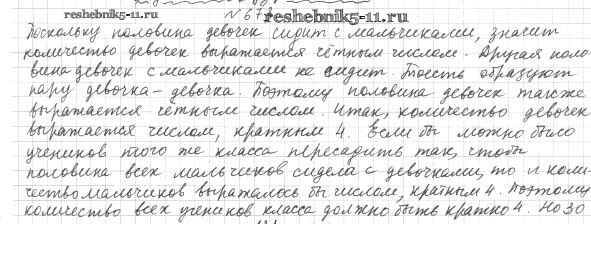 reshebnik5-11.ru
№ 673 reshebnik5-11.ru
Поскольку половина девочек сидит с мальчиками, значит
количество девочек выражается чётным числом. Другая поло-
вина девочек с мальчиками не сидит. Тоесть образуют
пару девочка-девочка. Поэтому половина девочек также
выражается чётным числом. Итак, количество девочек
выражается числом, кратным 4. Если бы можно было
учеников того же класса пересадить так, чтобы
половина всех мальчиков сидела с девочками, то и коли-
чество мальчиков выражалось бы числом, кратным 4. Поэтому
количество всех учеников класса должно быть кратно 4. Но 30